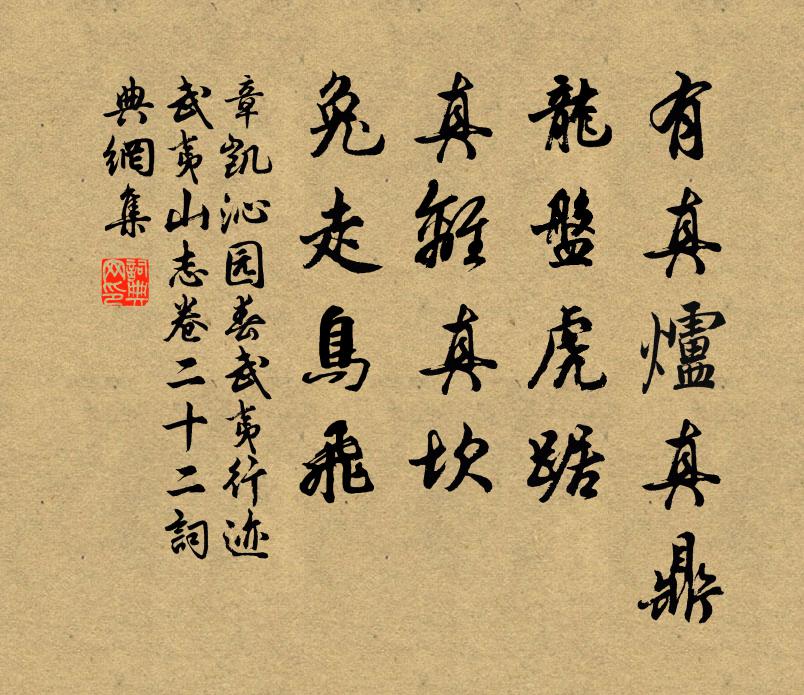 有真爐真鼎
龍盤虎踞
真離真坎
兔走烏飛
章凱沁园春武夷行迹
武夷山志卷二十二詞
典網集
詞典網印